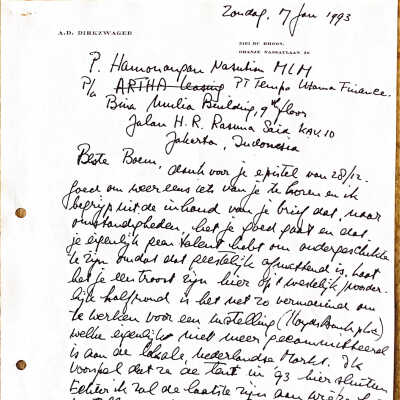 Zondag, 7 Jan 1993
A.D. DIRKZWAGER
3161 HC RHOON,
ORANJE NASSAULAAN 20
P. Hamonangan Nasution MLM
P/a ARTHA leasing PT Tempo Utama Finance.
Bina Mulia Building, 9th floor
Jalan H.R. Rasuna Said KAV. 10
Jakarta, Indonesia
Beste Boem, dank voor je epistel van 28/12.
Goed om weer eens iets van je te horen en ik
begrijp uit de inhoud van je brief dat, naar
omstandigheden, het je goed gaat en dat
je eigenlijk geen talent hebt om ondergeschikte
te zijn omdat dat geestelijk afmattend is. Laat
het je een troost zijn hier op 't westelijk/noorder-
lijke halfrond is het net zo vermoeiend om
te werken voor een instelling
welke eigenlijk niet meer gecommitteerd
is aan de lokale, nederlandse markt. Ik
voorspel dat ze de tent in '93 hier sluiten
Echter ik zal de laatste zijn aan wie ze het